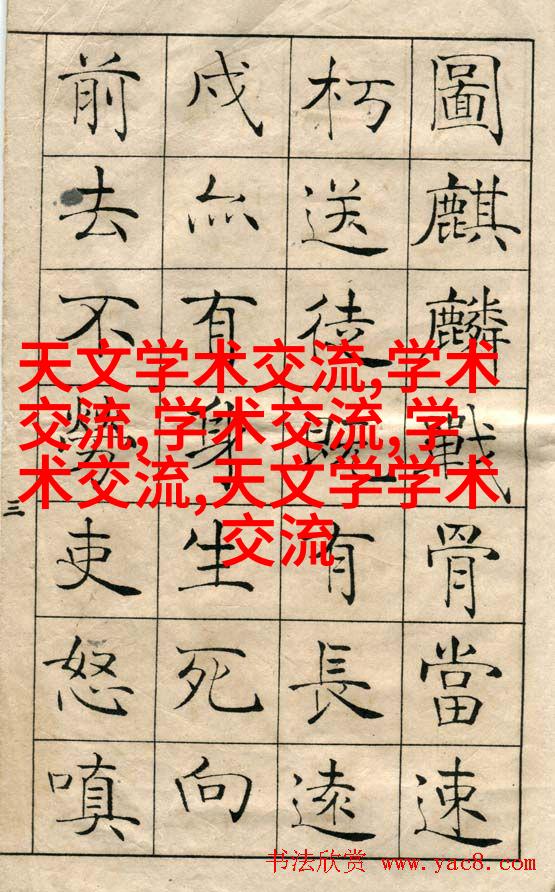 圖麒麟戰骨當速
朽送徒既有長遠
戍亦有身生死向
前去不勞吏怒嗔
三
天文学术交流,学术
交流,学术交流,学
术交流,天文学学术
交流
书法欣赏 www.yac8.com